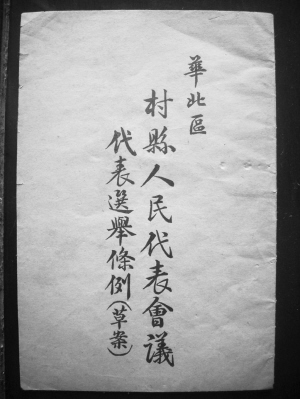 華北區
村縣人民代表會議
代表選舉條例(草案)